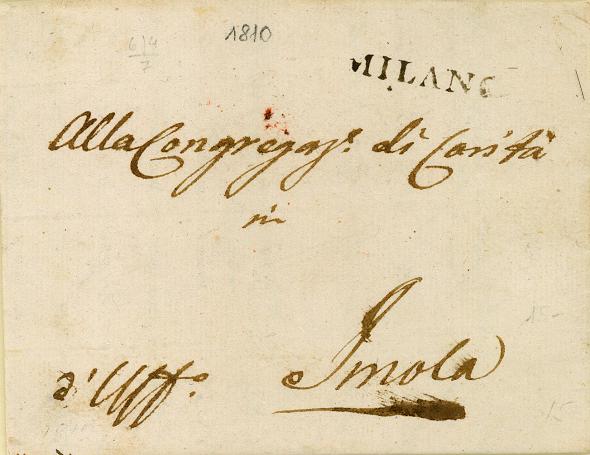 1810
6/4
7
MILANO
Alla Congregaz.e di Carità
in
Imola
d'Uff.o
15-
15